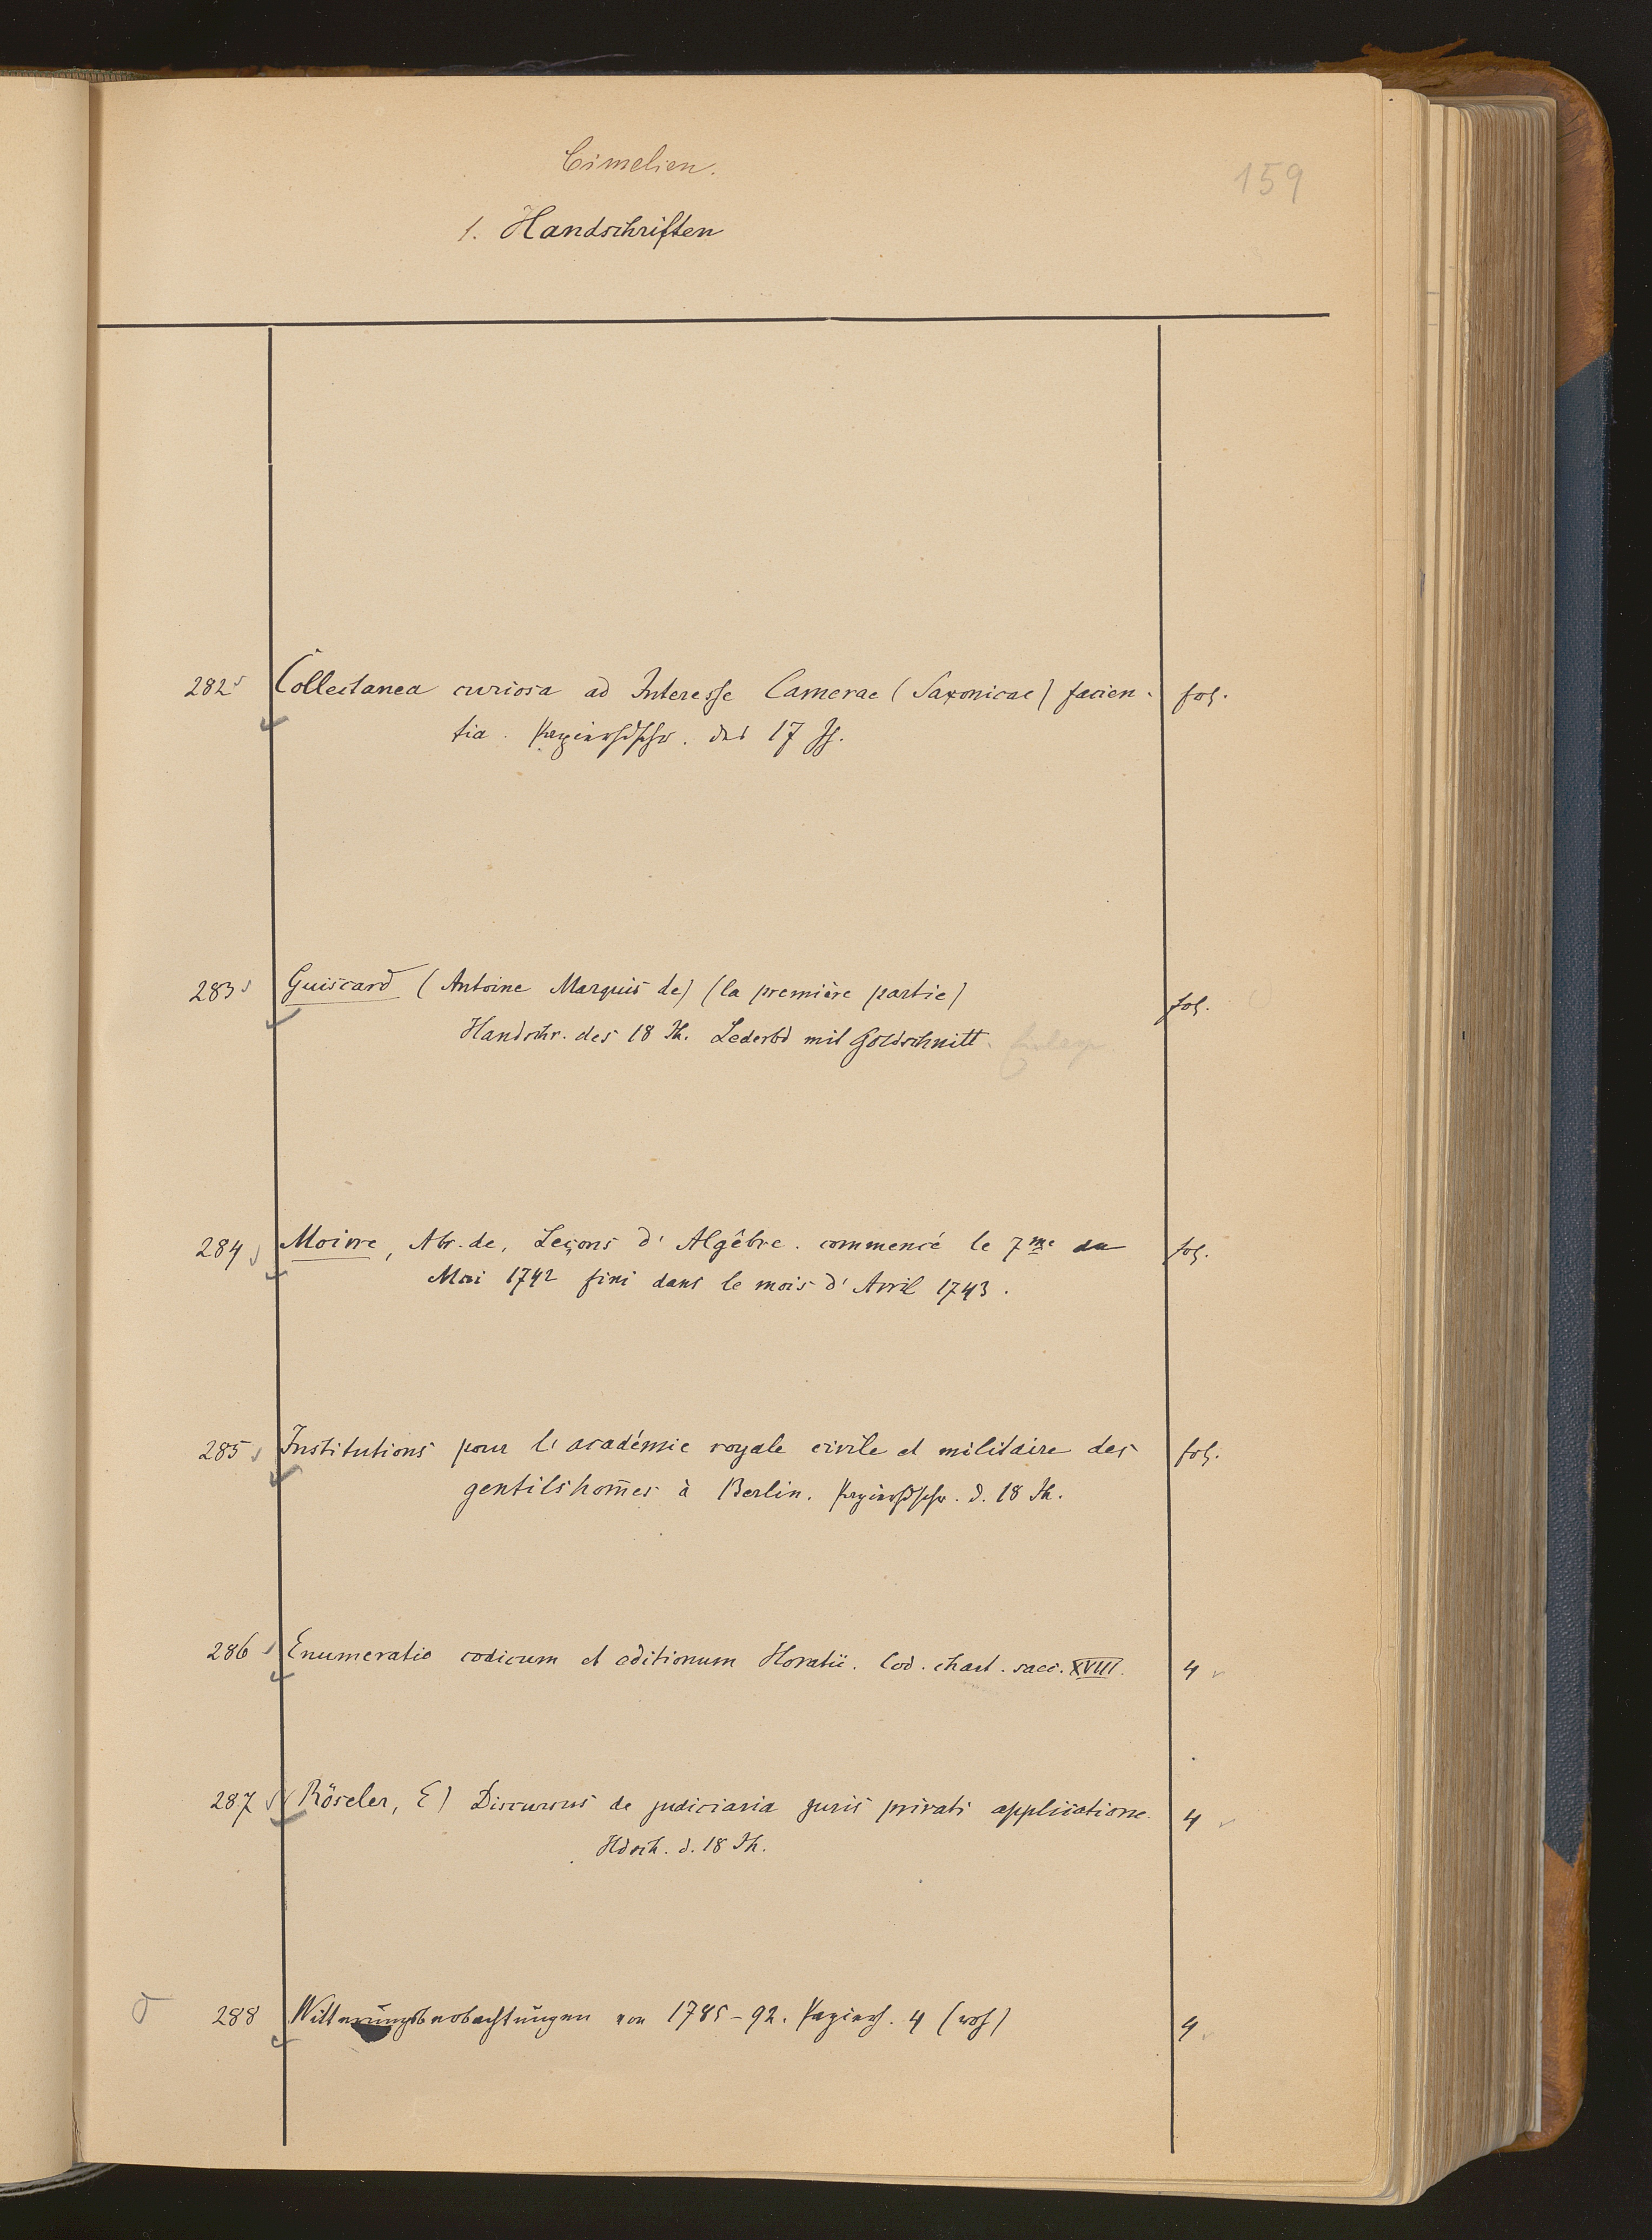 Cimelien.
159
1. Handschriften
282 Collectanea curiosa ad Interesse Camerae (Saxonicae) facien- fol.
tia. Papierhdschr. des 17 Jh.
283 Guiscard (Antoine Marquis de) (la première partie) fol.
Handschr. des 18 Jh. Lederbd mit Goldschnitt.
284 Moivre, Abr. de, Leçons d'Algêbre. commencé le 7me de fol.
Mai 1742 fini dans le mois d'Avril 1743.
285 Institutions pour l'académie royale civile et militaire des fol.
gentilshom̄es à Berlin. Papierhdschr. d. 18 Jh.
286 Enumeratio codicum et editionum Horatii. Cod. chart. saec. XVIII. 4
287 (Röseler, E) Discursus de judiciaria juris privati applicatione 4
Hdsch. d. 18 Jh.
288 Witterungsbeobachtungen von 1785-92. Papierh. 4 (roh) 4